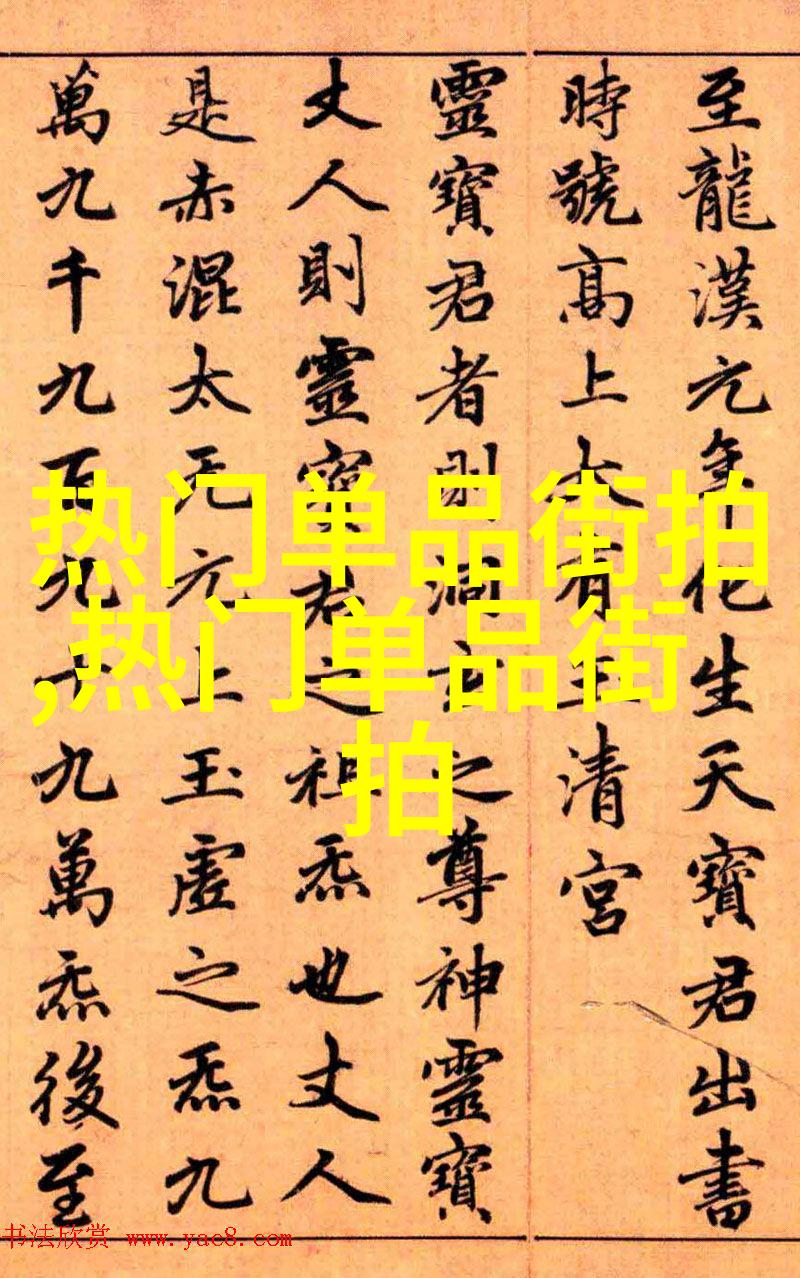 至龍漢元年化生天寶君出書
時號高上大有玉清宮
靈寶君者則洞玄之尊神靈寶
丈人則靈寶君之祖炁也丈人
是赤混太无元上玉虛之炁九
萬九千九百九十九萬炁後至
热门单品街拍
,热门单品街
拍
书法欣赏 www.yac8.com